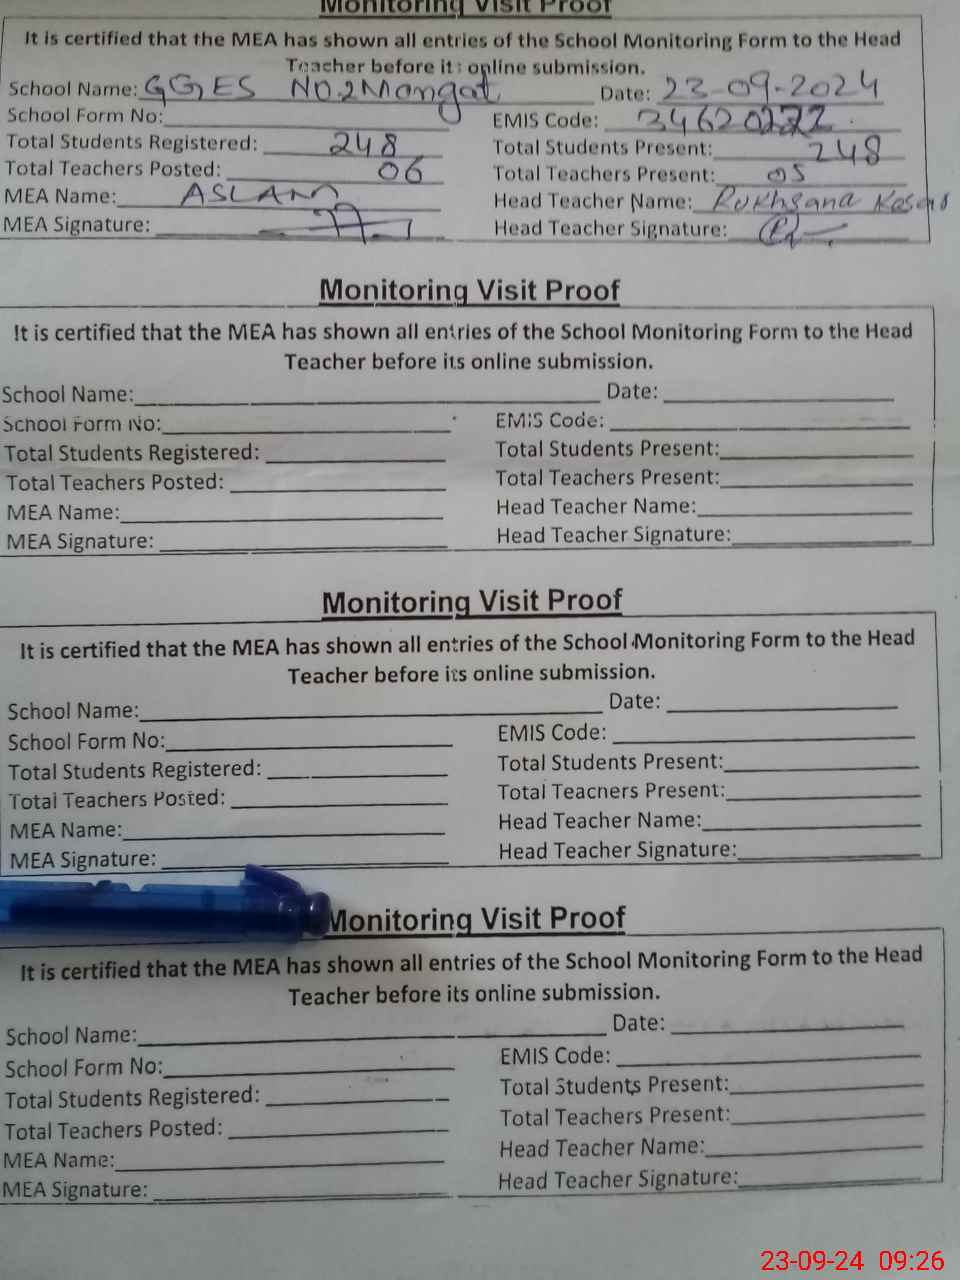 Monitoring Visit Proof
It is certified that the MEA has shown all entries of the School Monitoring Form to the Head
Teacher before its online submission.
School Name: GGES NO.2 Mangat Date: 23-09-2024
School Form No: EMIS Code:
Total Students Registered: 248 Total Students Present: 248
Total Teachers Posted: 06 Total Teachers Present: 05
MEA Name: ASLAM Head Teacher Name: Rukhsana
MEA Signature: Head Teacher Signature:
Monitoring Visit Proof
It is certified that the MEA has shown all entries of the School Monitoring Form to the Head
Teacher before its online submission.
School Name: Date:
School Form No: EMIS Code:
Total Students Registered: Total Students Present:
Total Teachers Posted: Total Teachers Present:
MEA Name: Head Teacher Name:
MEA Signature: Head Teacher Signature:
Monitoring Visit Proof
It is certified that the MEA has shown all entries of the School Monitoring Form to the Head
Teacher before its online submission.
School Name: Date:
School Form No: EMIS Code:
Total Students Registered: Total Students Present:
Total Teachers Posted: Total Teachers Present:
MEA Name: Head Teacher Name:
MEA Signature: Head Teacher Signature:
Monitoring Visit Proof
It is certified that the MEA has shown all entries of the School Monitoring Form to the Head
Teacher before its online submission.
School Name: Date:
School Form No: EMIS Code:
Total Students Registered: Total Students Present:
Total Teachers Posted: Total Teachers Present:
MEA Name: Head Teacher Name:
MEA Signature: Head Teacher Signature:
23-09-24 09:26